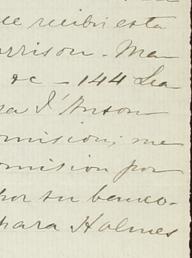 e recibí esta
arrison. Man
& c - 144 Lea
sa I' Anson
omision; me
omision por
por su banco.
para Holmes